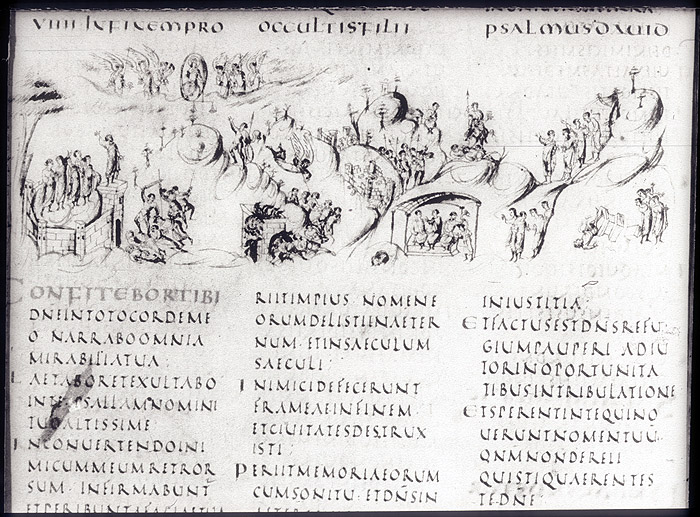 VIIII INFINEMPRO OCCULTISFILII PSALMUSDAUID
CONFITEBORTIBI
DNEINTOTOCORDEME
O NARRABOOMNIA
MIRABILIATUA:
LAETABORETEXULTABO
INTEPSALLAMNOMINI
TUOALTISSIME:
INCONUERTENDOINI
MICUMMEUMRETROR
SUM·INFIRMABUNT
ETPERIBUNTAFACIETUA
RIITIMPIUS·NOMENE
ORUMDELISTIINAETER
NUM·ETINSAECULUM
SAECULI:
INIMICIDEFECERUNT
FRAMEAEINFINEM·
ETCIUITATESDESTRUX
ISTI:
PERIITMEMORIAEORUM
CUMSONITU·ETDNSIN
INIUSTITIA:
ETFACTUSESTDNSREFU
GIUMPAUPERI ADIU
TORINOPORTUNITA
TIBUSINTRIBULATIONE
ETSPERENTINTEQUINO
UERUNTNOMENTUU·
QNMNONDERELI
QUISTIQUAERENTES
TEDNE·